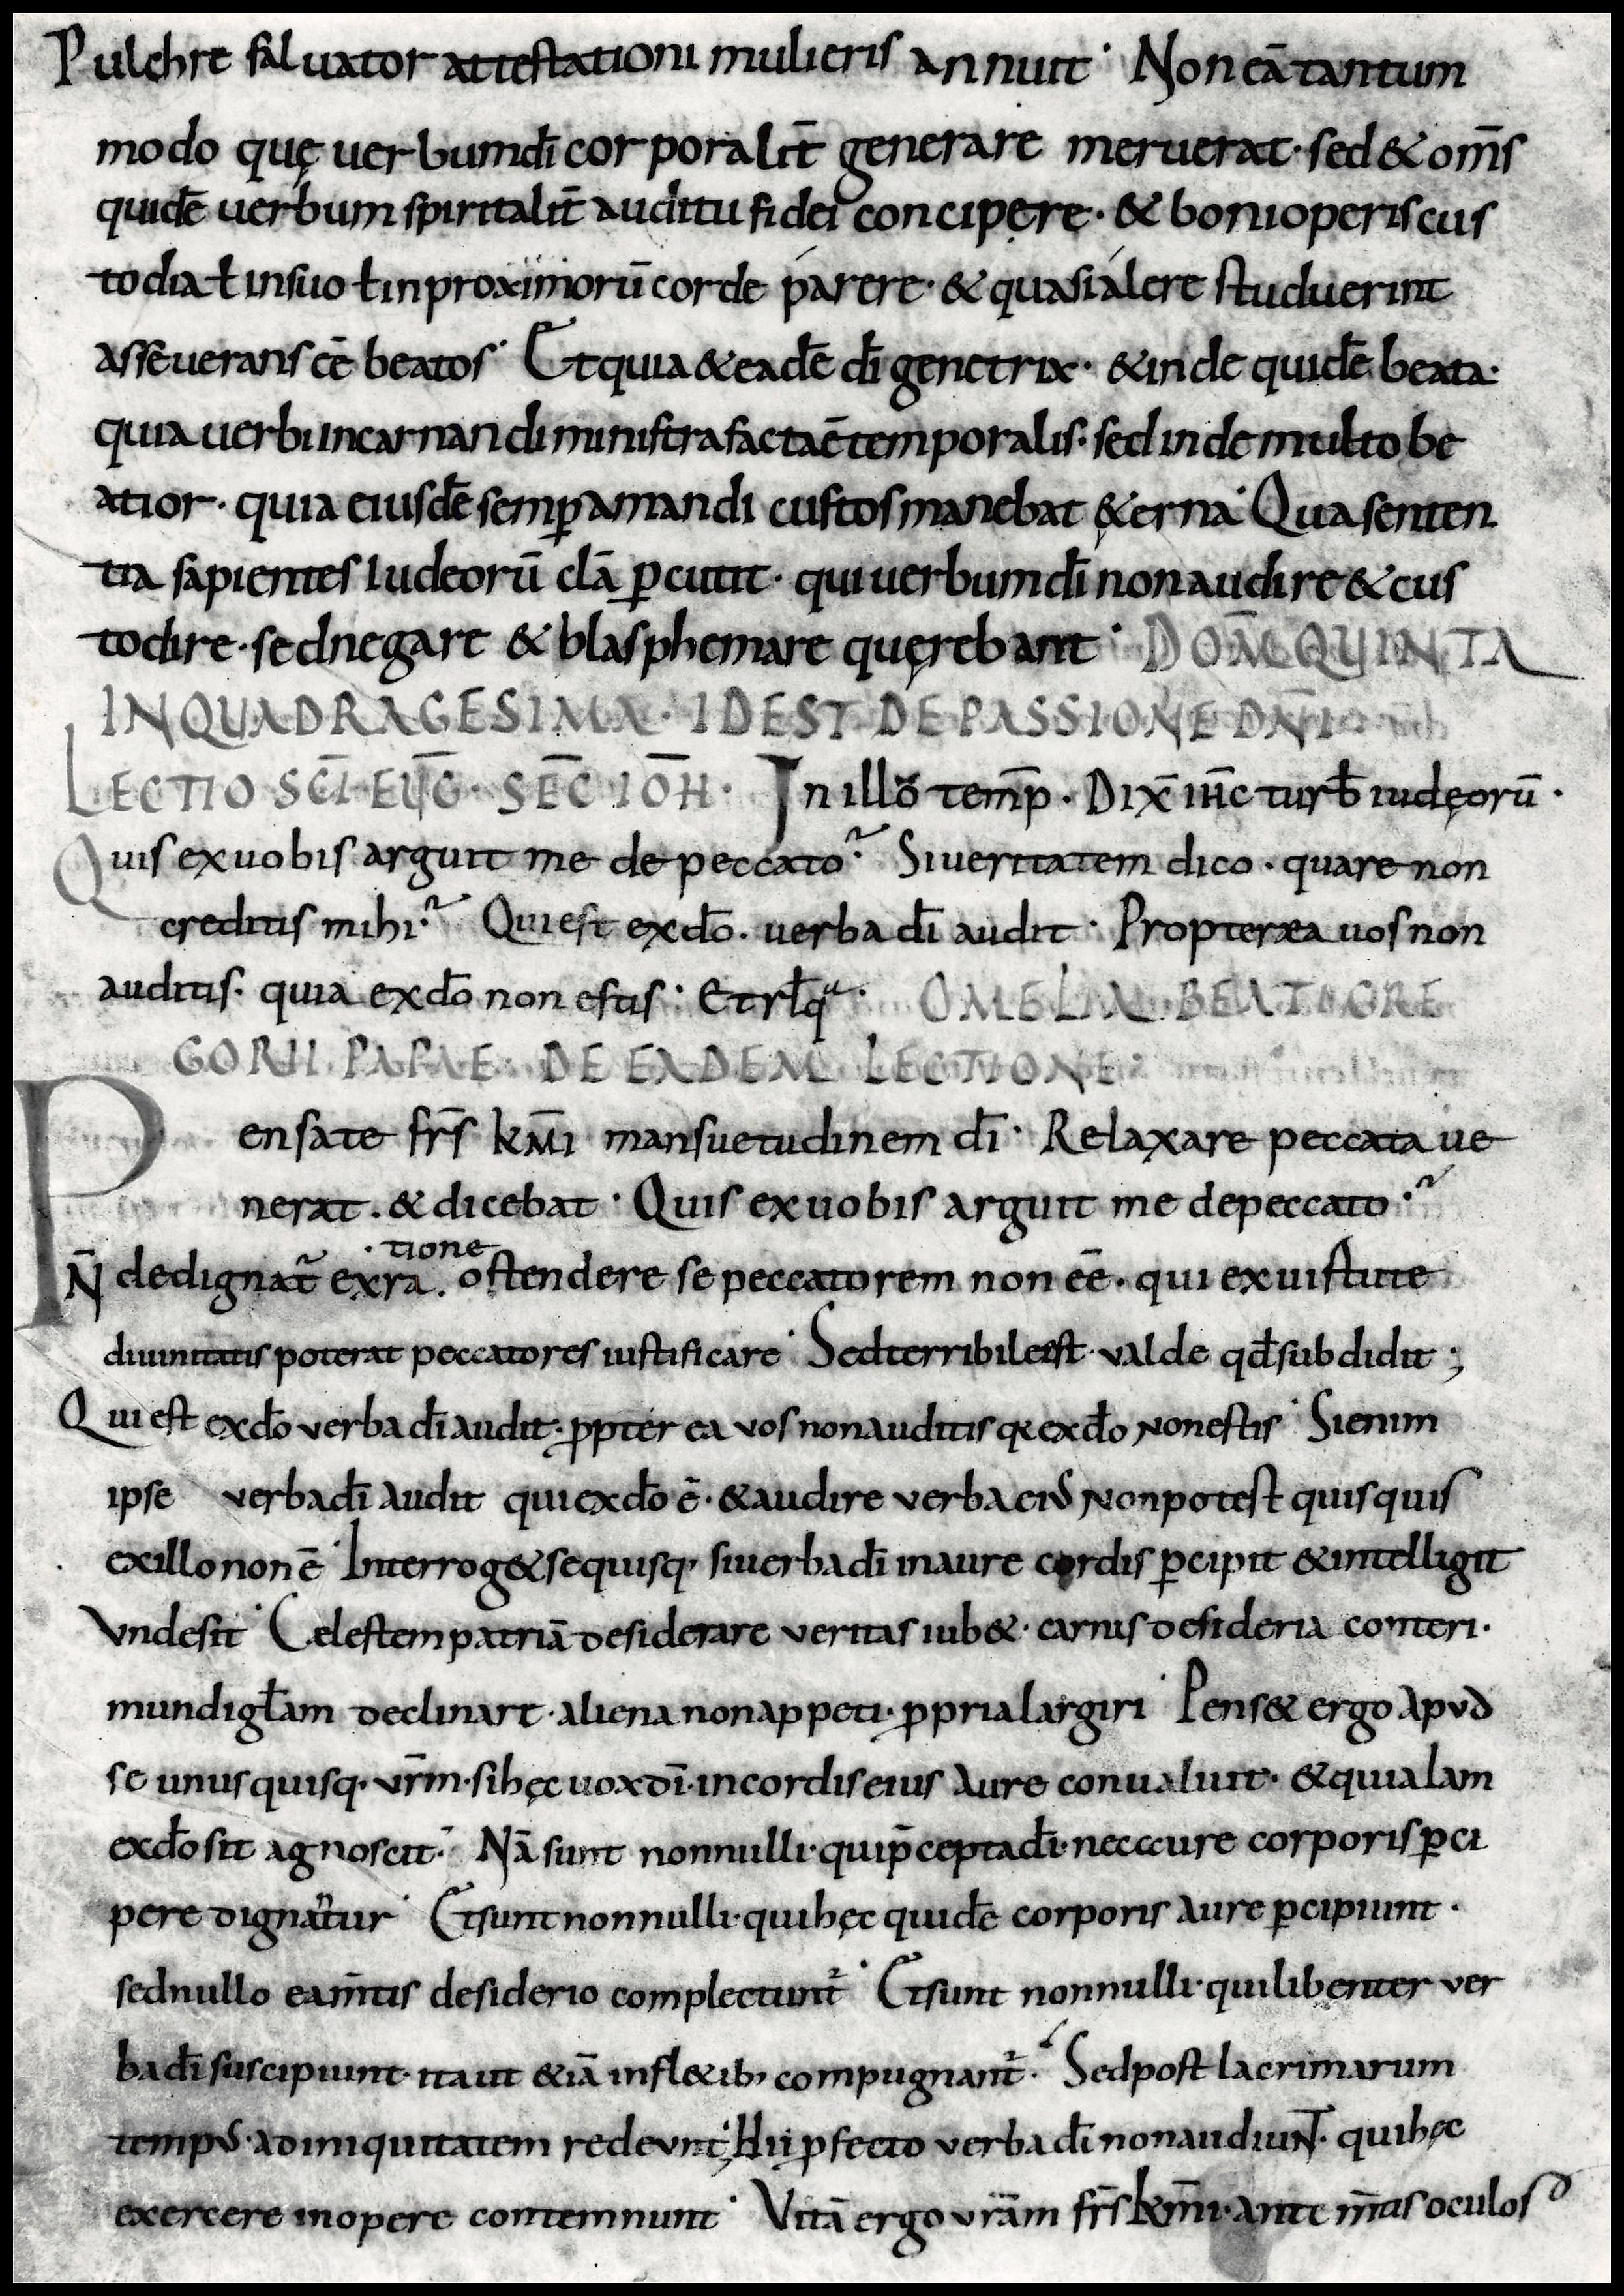 Pulchre saluator attestationi mulieris annuit · Non eā tantum
modo quę uerbum dī corporalit̄ generare meruerat · sed & om̄s
qui idē uerbum spiritalit̄ auditu fidei concipere · & boni operis cus
todia ł in suo ł in proximorū corde parere · & quasi alere studuerint
asseuerans eē beatos · Et quia & eadē dī genetrix · & inde quidē beata ·
quia uerbi incarnandi ministra facta ē temporalis · sed inde multo be
atior · quia eiusdē semꝑ amandi custos manebat ę&erna · Qua senten
tia sapientes Iudeorū clā ꝑcutit · qui uerbum dī non audire & cus
todire · sed negare & blasphemare quęrebant · DOM̄ QUINTA
IN QUADRAGESIMA · ID EST DE PASSIONE DN̄I
LECTIO SC̄I EUḠ · SEC̄ IOH̄ · In illo tem̄p · Dix̄ ih̄c turb̄ iudęorū ·
Quis ex uobis arguit me de peccato? Si ueritatem dico · quare non
creditis mihi? Qui est ex dō · uerba dī audit · Propterea uos non
auditis · quia ex dō non estis · Et rl̄qª ·  OMELIA BEATI GRE
GORII PAPAE · DE EADEM LECTIONE ·
Pensate fr̄s km̄i mansuetudinem dī · Relaxare peccata ue
nerat · & dicebat · Quis ex uobis arguit me de peccato?
N̄ dedignat̄ ex ra·tione ostendere se peccatorem non eē · qui ex uirtute
diuinitatis poterat peccatores iustificare · Sed terribile est · valde qd̄ subdidit ;
Qui est ex dō verba dī audit · ꝓpter ea vos non auditis qꝛ ex dō non estis · Si enim
ipse verba dī audit qui ex dō ē · & audire verba eiꝰ non potest quisquis
ex illo non ē · Interrog& se quisq· si uerba dī in aure cordis ꝑcipit & intelligit
unde sit · Celestem patriā desiderare veritas iub& · carnis desideria conteri ·
mundi gl̄am declinare · aliena non appeti · ꝓpria largiri · Pens& ergo apud
se unus quisq· vr̄m · si hęc uox dī · in cordis eius aure conualuit · & quia Iam
ex dō sit agnoscit · Nā sunt nonnulli · qui p̄cepta dī · nec aure corporis ꝑci
pere dignantur · Et sunt nonnulli · qui hęc quidē corporis aure ꝑcipiunt ·
sed nullo ea m̄tis desiderio complectunt̄ · Et sunt nonnulli · qui libenter ver
ba dī suscipiunt · ita ut &iā in fl&ib; compugnant̄ · Sed post lacrimarum
tempꝰ · ad iniquitatem redeunt ; Hii ꝓfecto verba dī non audiunt · qui hęc
exercere in opere contemnunt · Vitā ergo vr̄am fr̄s km̄i · ante m̄tis oculos